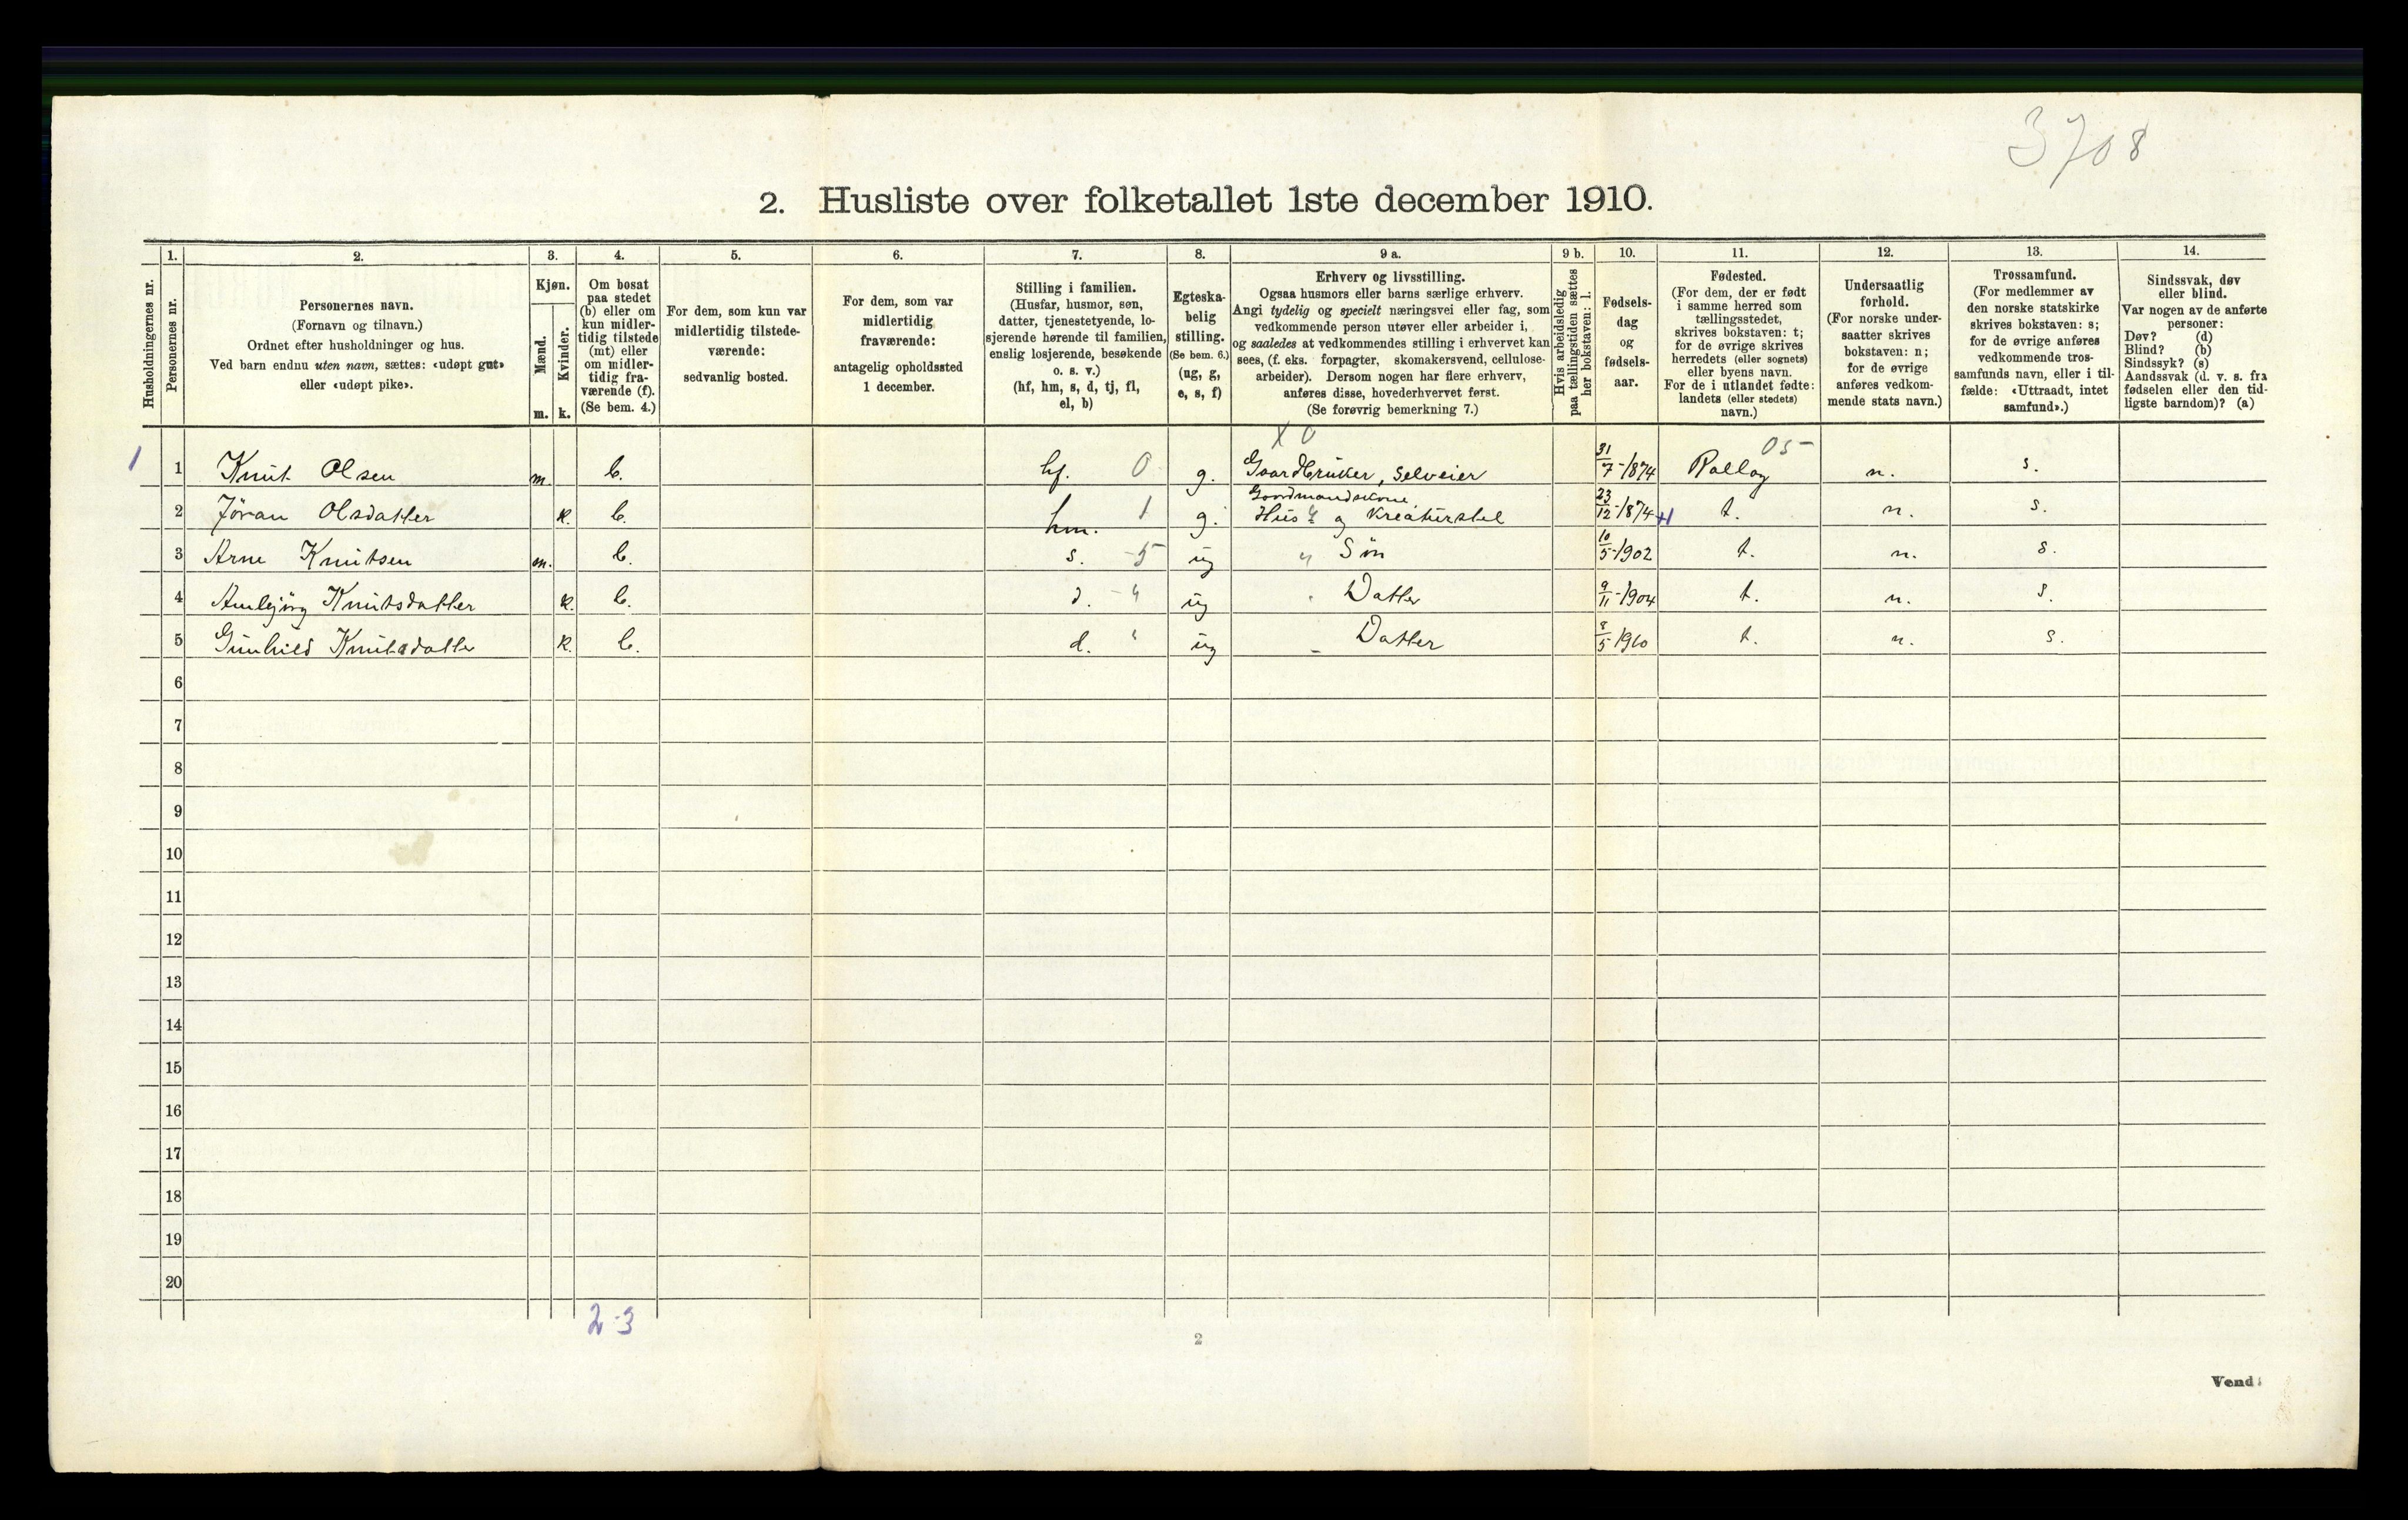 3708
2. Husliste over folketallet 1ste december 1910.
Husholdningernes nr.
1.
Personernes nr.
2.
Personernes navn.
(Fornavn og tilnavn.)
Ordnet efter husholdninger og hus.
Ved barn endnu uten navn, sættes: «udøpt gut»
eller «udøpt pike».
3.
Kjøn.
Mænd.
Kvinder.
m. k.
4.
Om bosat
paa stedet
(b) eller om
kun midler-
tidig tilstede
(mt) eller
om midler-
tidig fra-
værende (f).
(Se bem. 4.)
5.
For dem, som kun var
midlertidig tilstede-
værende:
sedvanlig bosted.
6.
For dem, som var
midlertidig
fraværende:
antagelig opholdssted
1 december.
7.
Stilling i familien.
(Husfar, husmor, søn,
datter, tjenestetyende, lo-
sjerende hørende til familien,
enslig losjerende, besøkende
o. s. v.)
(hf, hm, s, d, tj, fl,
el, b)
8.
Egteska-
belig
stilling.
(Se bem. 6.)
(ug, g,
e, s, f)
9 a.
Erhverv og livsstilling.
Ogsaa husmors eller barns særlige erhverv.
Angi tydelig og specielt næringsvei eller fag, som
vedkommende person utøver eller arbeider i,
og saaledes at vedkommendes stilling i erhvervet kan
sees, (f. eks. forpagter, skomakersvend, cellulose-
arbeider). Dersom nogen har flere erhverv,
anføres disse, hovederhvervet først.
(Se forøvrig bemerkning 7.)
9 b.
Hvis arbeidsledig
paa tællingstiden sættes
her bokstaven: l.
10.
Fødsels-
dag
og
fødsels-
aar.
11.
Fødested.
(For dem, der er født
i samme herred som
tællingsstedet,
skrives bokstaven: t;
for de øvrige skrives
herredets (eller sognets)
eller byens navn.
For de i utlandet fødte:
landets (eller stedets)
navn.)
12.
Undersaatlig
forhold.
(For norske under-
saatter skrives
bokstaven: n;
for de øvrige
anføres vedkom-
mende stats navn.)
13.
Trossamfund.
(For medlemmer av
den norske statskirke
skrives bokstaven: s;
for de øvrige anføres
vedkommende tros-
samfunds navn, eller i til-
fælde: «Uttraadt, intet
samfund».)
14.
Sindssvak, døv
eller blind.
Var nogen av de anførte
personer:
Døv? (d)
Blind? (b)
Sindssyk? (s)
Aandssvak (d. v. s. fra
fødselen eller den tid-
ligste barndom)? (a)
X 0 05-
1 1 Knut Olsen m. b. hf. 0 g. Gaardbruker, selveier 31/7-1874 Rollag n. s.
Gaardmandskone
2 Jöran Olsdatter k. b. hm. 1 g. Hus " og Kreaturstel 23/12-1874 t. n. s.
3 Arne Knutsen m. b. s. -5 ug " Sön 10/5-1902 t. n. s.
4 Knutsdatter k. b. d. - " ug Datter 9/11-1904 t. n. s.
5 Gunhild Knutsdatter k. b. d. " ug - Datter 8/5 1910 t. n. s.
6
7
8
9
10
11
12
13
14
15
16
17
18
19
20
2-3
2
Vend!